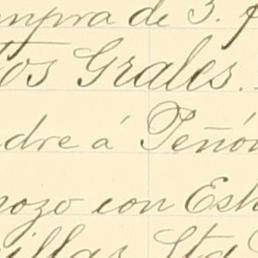 mpra de 3. f
tos Grales.
dre á Peñón
pozo con Esk
illas Sta